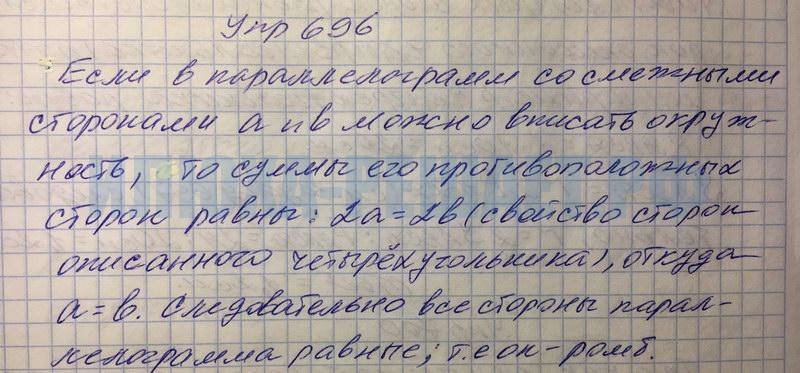 Упр 696
Если в параллелограмм со смежными
сторонами a и b можно вписать окруж-
ность, то суммы его противоположных
сторон равны: 2a = 2b (свойство сторон
описанного четырёхугольника), откуда
a = b. Следовательно все стороны парал-
лелограмма равные, т.е он - ромб.